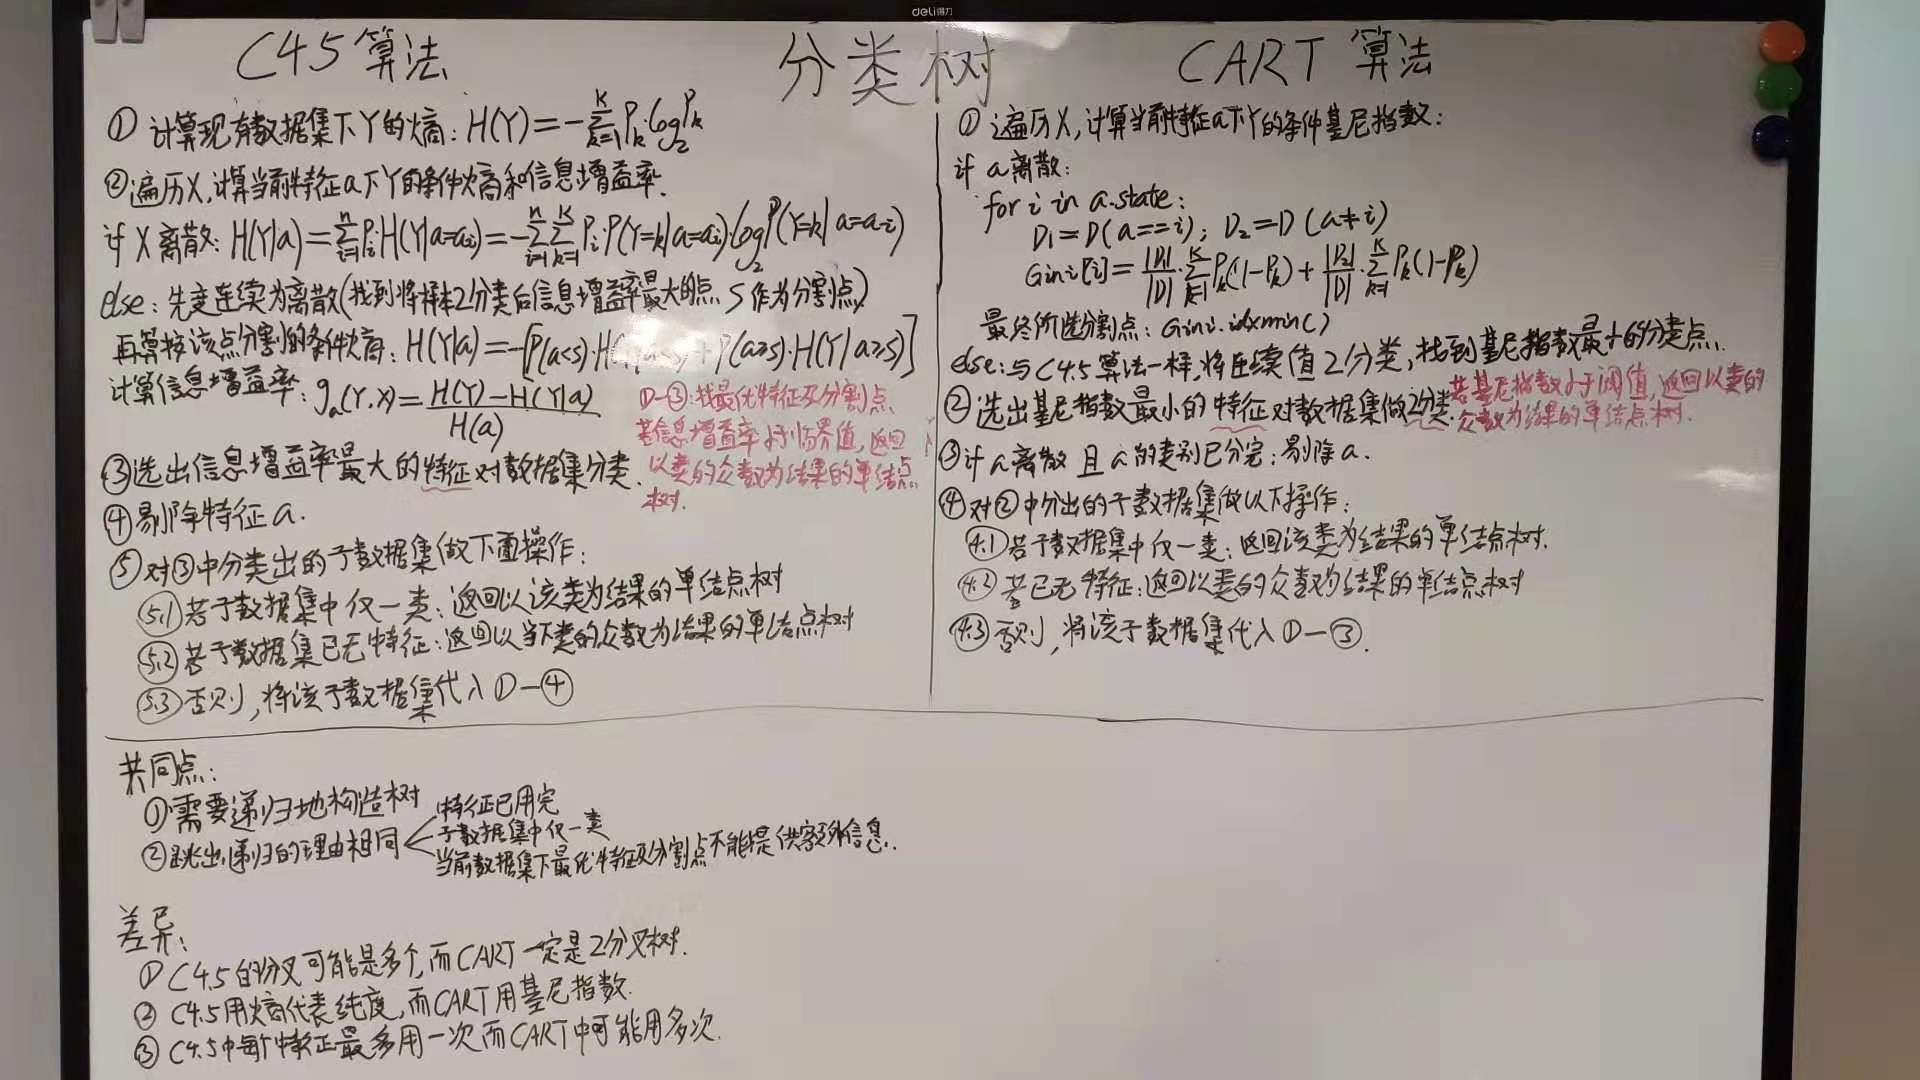 deli得力
分类树
C4.5算法
① 计算现有数据集下Y的熵：H(Y)=-∑_{k=1}^{K} P_k·log_2 P_k
②遍历X,计算当前特征a下Y的条件熵和信息增益率.
if X离散：H(Y|a)=∑_{i=1}^{n} P_i H(Y|a=a_i)=-∑_{i=1}^{n}∑_{k=1}^{K} P_i·P(Y=k|a=a_i)·log_2 P(Y=k|a=a_i)
else：先变连续为离散(找到将样本2分类后信息增益率最大的点S作为分割点)
再算按该点分割的条件熵：H(Y|a)=-[P(a<s)·H( )+P(a≥s)·H(Y|a≥s)]
计算信息增益率：g_a(Y,X)=(H(Y)-H(Y|a))/H(a)
①-③：找最优特征及分割点
若信息增益率小于临界值，返回
以类的众数为结果的单结点
树.
③选出信息增益率最大的特征对数据集分类.
④剔除特征a.
⑤对③中分类出的子数据集做下面操作：
5.1 若子数据集中仅一类：返回以该类为结果的单结点树
5.2 若子数据集已无特征：返回以当下类的众数为结果的单结点树
5.3 否则，将该子数据集代入①-④
CART 算法
① 遍历X,计算当前特征a下Y的条件基尼指数：
if a离散：
for i in a.state：
D1=D(a==i)；D2=D(a≠i)
Gini[i]=|D1|/|D|·∑_{k=1}^{K} P_k(1-P_k)+|D2|/|D|·∑_{k=1}^{K} P_k(1-P_k)
最终所选分割点：Gini.idxmin()
else：与C4.5算法一样,将连续值2分类,找到基尼指数最小的分类点.
② 选出基尼指数最小的特征对数据集做2分类.
若基尼指数小于阈值，返回以类的
众数为结果的单结点树.
③if a离散 且a的类别已分完：剔除a.
④对②中分出的子数据集做以下操作：
4.1 若子数据集中仅一类：返回该类为结果的单结点树.
4.2 若已无特征：返回以类的众数为结果的单结点树
4.3 否则，将该子数据集代入①-③.
共同点：
①需要递归地构造树
②跳出递归的理由相同
特征已用完
子数据集中仅一类
当前数据集下最优特征及分割点不能提供额外信息.
差异：
①C4.5的分叉可能是多个,而CART一定是2分叉树.
② C4.5用熵代表纯度,而CART用基尼指数.
③ C4.5中每个特征最多用一次而CART中可能用多次.